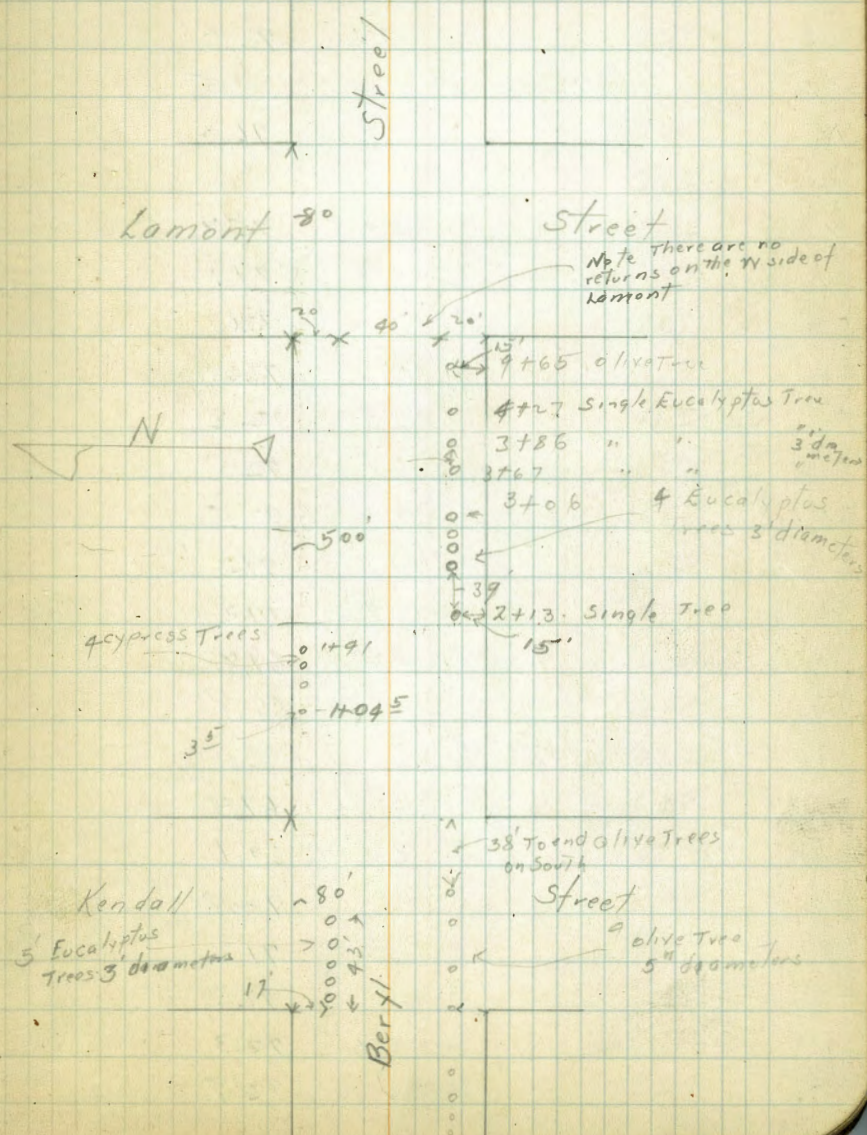 Street
Lamont 80
Street
Note There are no
returns on the W side of
Lamont
20
40'
20'
15'
9+65 Olive Tree
4+27 Single Eucalyptus Tree
N
3+86 " " " 3' diameters
3+67 " " "
3+06
4 Eucalyptus
trees 3' diameters
500'
39'
2+13. Single Tree
15'
4 cypress Trees
1+91
1+04 5
3 5
38' To end olive Trees
on South
Kendall
80'
Street
5' Eucalyptus
Trees 3' diameters
43'
olive Tree
5" diameters
17'
Beryl